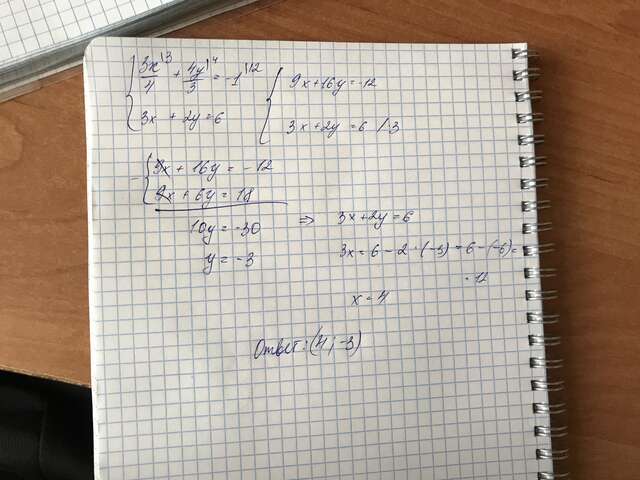 { 3x/4 \3 + 4y/3 \4 = -1 \12
3x + 2y = 6
{ 9x+16y=-12
3x+2y=6 /·3
- { 9x + 16y = -12
9x + 6y = 18
10y = -30
y = -3
⇒ 3x+2y=6
3x = 6 - 2 · (-3) = 6 - (-6) =
= 12
x = 4
Ответ: (4; -3)